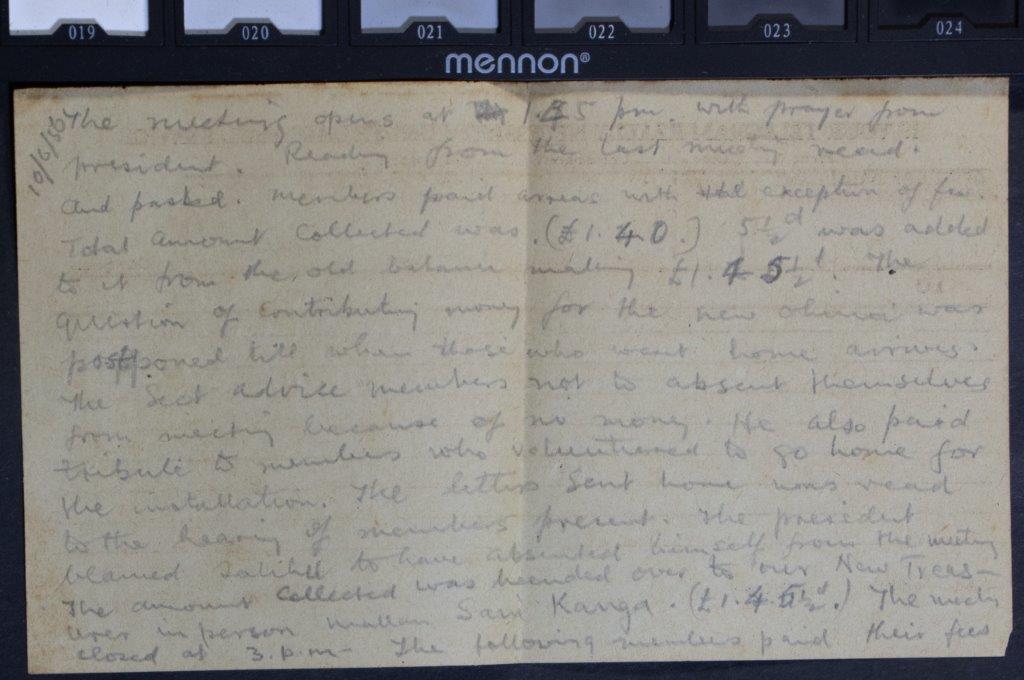 019 020 021 022 023 024
mennon®
10/6/56
The meeting opens at 1.35 pm. with prayer from
president. Reading from the last meeting read.
And passed. Members paid arreas with the exception of few.
Total Amount Collected was. (£1.4.0.) 5½d was added
to it from the old balance making £1.4 5½d. The
question of contributing money for the new was
postponed till when those who went home arrives.
The Sect advice members not to absent themselves
from meeting because of no money. He also paid
tribute to members who volunteered to go home for
the installation. The letters Sent home was read
to the hearing of members present. The president
blamed to have absented himself from the meeting
The amount collected was handed over to our New Treas-
urer in person Mallam Sani Kanga. (£1.4.5½d.) The meetin
closed at 3.p.m- The following members paid their fees